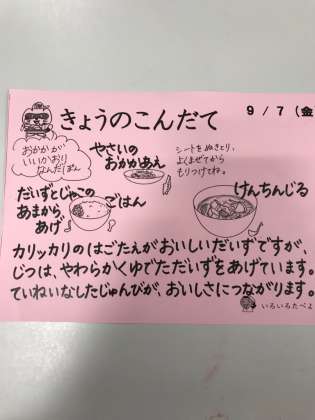 きょうのこんだて
9/7(金
おかかが
いいかおり
なんだぽん
やさいの
おかかあえ
シートをぬきとり、
よくまぜてから
もりつけてね。
だいずとじゃこの
あまから
あげ
ごはん
けんちんじる
カリッカリのはごたえがおいしいだいずですが、
じつは、やわらかくゆでただいずをあげています。
ていねいなしたじゅんびが、おいしさにつながります。
いろいろたべよ